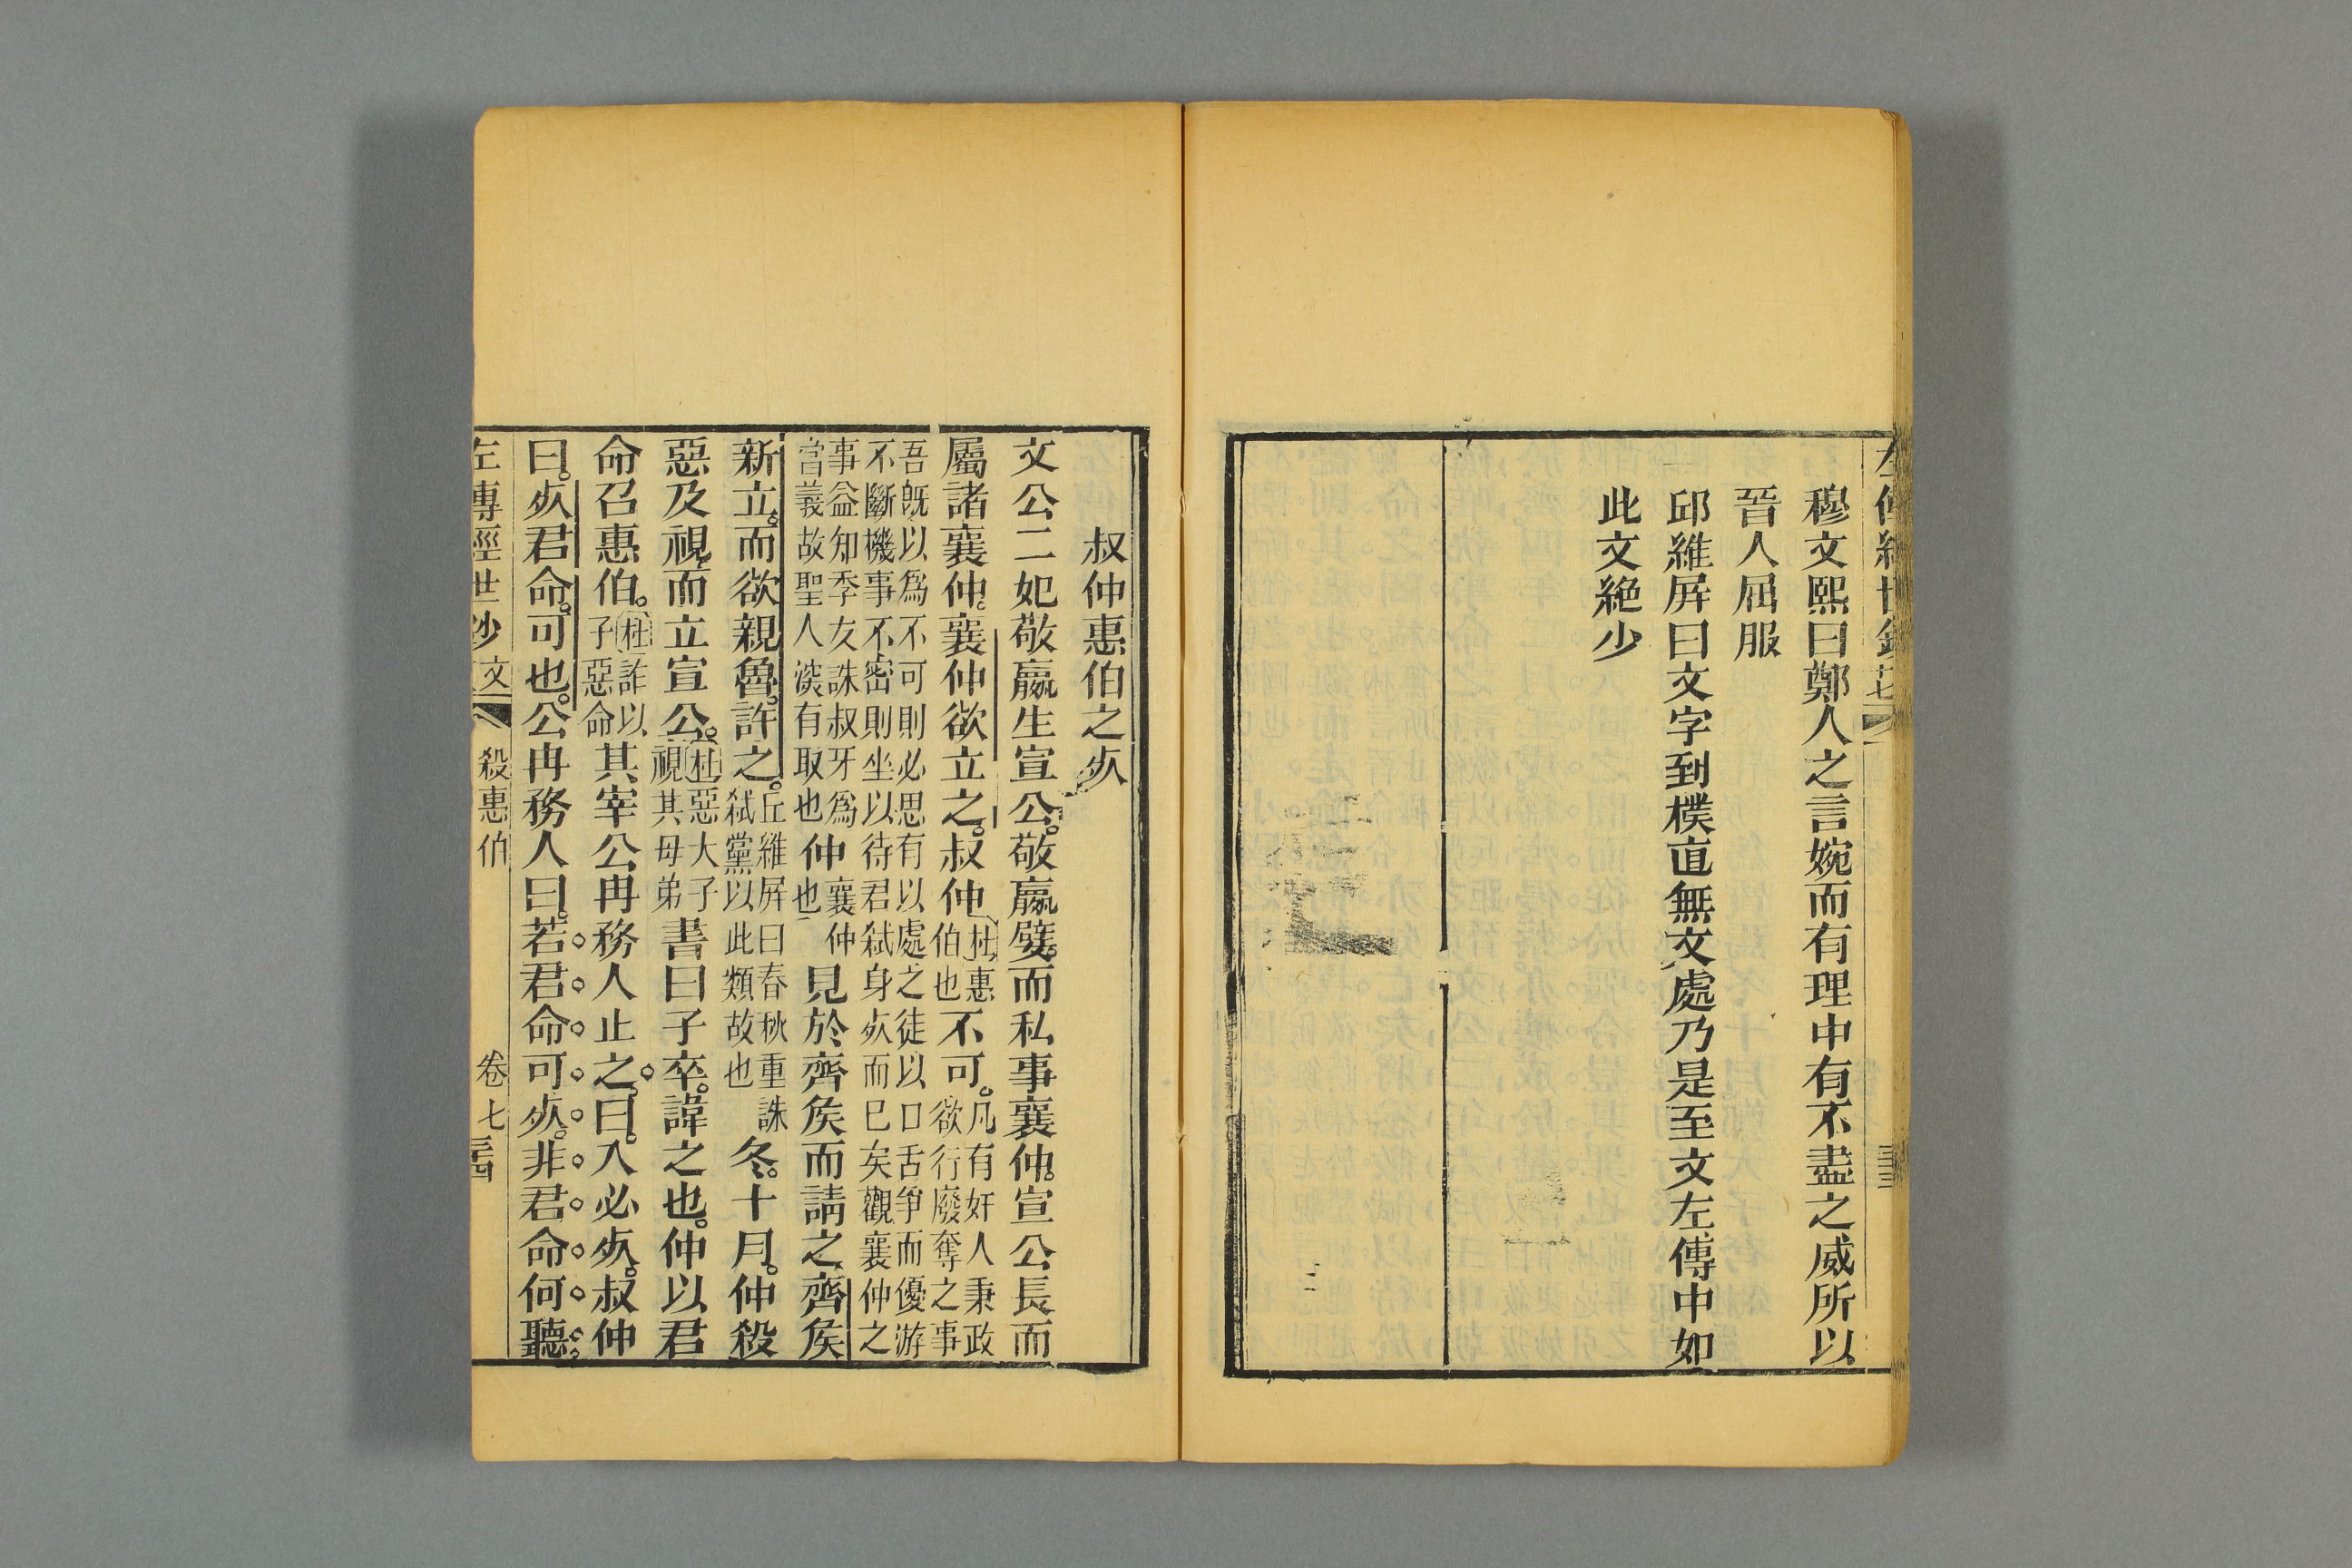 穆文熙曰鄭人之言婉而有理中有不盡之威所以
晉人屈服
邱維屏曰文字到樸直無文處乃是至文左傳中如
此文絕少
叔仲惠伯之𣦸
文公二妃敬嬴生宣公。敬嬴嬖。而私事襄仲。宣公長而
屬諸襄仲。襄仲欲立之。叔仲
杜惠
伯也
不可。
凡有奸人秉政
欲行廢奪之事
吾旣以爲不可則必思有以處之徒以口舌爭而優游
不斷機事不密則坐以待君弑身𣦸而已矣觀襄仲之
事益知季友誅叔牙爲
當義故聖人深有取也
仲
襄仲
也
見於齊矦而請之。齊矦
新立。而欲親魯。許之。
丘維屏曰春秋重誅
弑黨以此類故也
冬。十月。仲殺
惡及視。而立宣公。
杜惡大子
視其母弟
書曰子卒。諱之也。仲以君
命召惠伯。
杜詐以
子惡命
其宰公冉務人止之。曰。入必𣦸。叔仲
曰。𣦸君命。可也。公冉務人曰。若君命可𣦸。非君命何聽。
左傳經世鈔
文
殺惠伯
卷七
三四